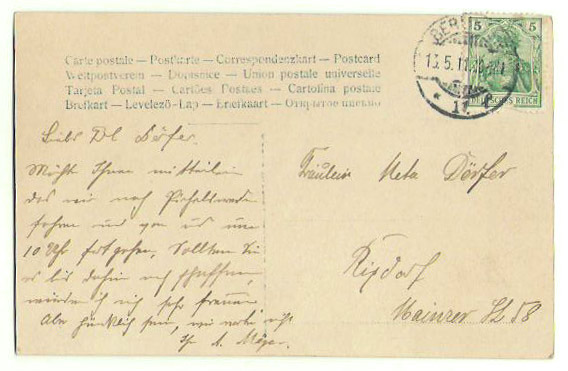 Carte postale — Postkarte — Correspondenzkart — Postcard
Weltpostverein — Dopisnice — Union postale universelle
Tarjeta Postal — Cartões Postaes — Cartolina postale
Brefkort — Levelező-Lap — Briefkaart — Открытое письмо
5 5
BERLIN
13.5.11
* 17
DEUTSCHES REICH
Liebe Dörfer.
Möchte Ihnen mitteilen
das wir nach Pichelswerder
fahren und von uns um
10 Uhr fortgehen, Sollten Sie
es bis dahin schaffen,
würden sehr freuen
Aber pünktlich sein, wir
A. Meyer.
Fräulein Meta Dörfer
Rixdorf
Mainzer St. 58